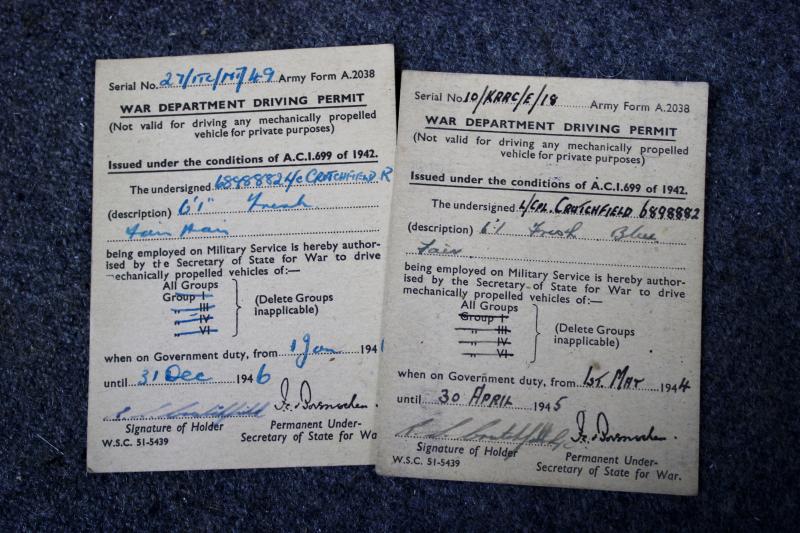 Serial No. 27/ITC/MT/49 Army Form A.2038
WAR DEPARTMENT DRIVING PERMIT
(Not valid for driving any mechanically propelled
vehicle for private purposes)
Issued under the conditions of A.C.I.699 of 1942.
The undersigned 6898882 L/c CRUTCHFIELD R
(description) 6'1" Fresh
Fair Hair
being employed on Military Service is hereby author-
ised by the Secretary of State for War to drive
mechanically propelled vehicles of:—
All Groups
Group I
„ III
„ IV
„ VI
(Delete Groups
inapplicable)
when on Government duty, from 1 Jan 194
until 31 Dec 1946
Signature of Holder
Permanent Under-
Secretary of State for Wa
W.S.C. 51-5439
Serial No. 10/KRRC/E/18 Army Form A.2038
WAR DEPARTMENT DRIVING PERMIT
(Not valid for driving any mechanically propelled
vehicle for private purposes)
Issued under the conditions of A.C.I.699 of 1942.
The undersigned L/CPL. CRUTCHFIELD 6898882
(description) 6'1 Fresh Blue
Fair
being employed on Military Service is hereby author-
ised by the Secretary of State for War to drive
mechanically propelled vehicles of:—
All Groups
Group I
„ III
„ IV
„ VI
(Delete Groups
inapplicable)
when on Government duty, from 1ST MAY 1944
until 30 APRIL 1945
Signature of Holder
Permanent Under-
Secretary of State for War.
W.S.C. 51-5439